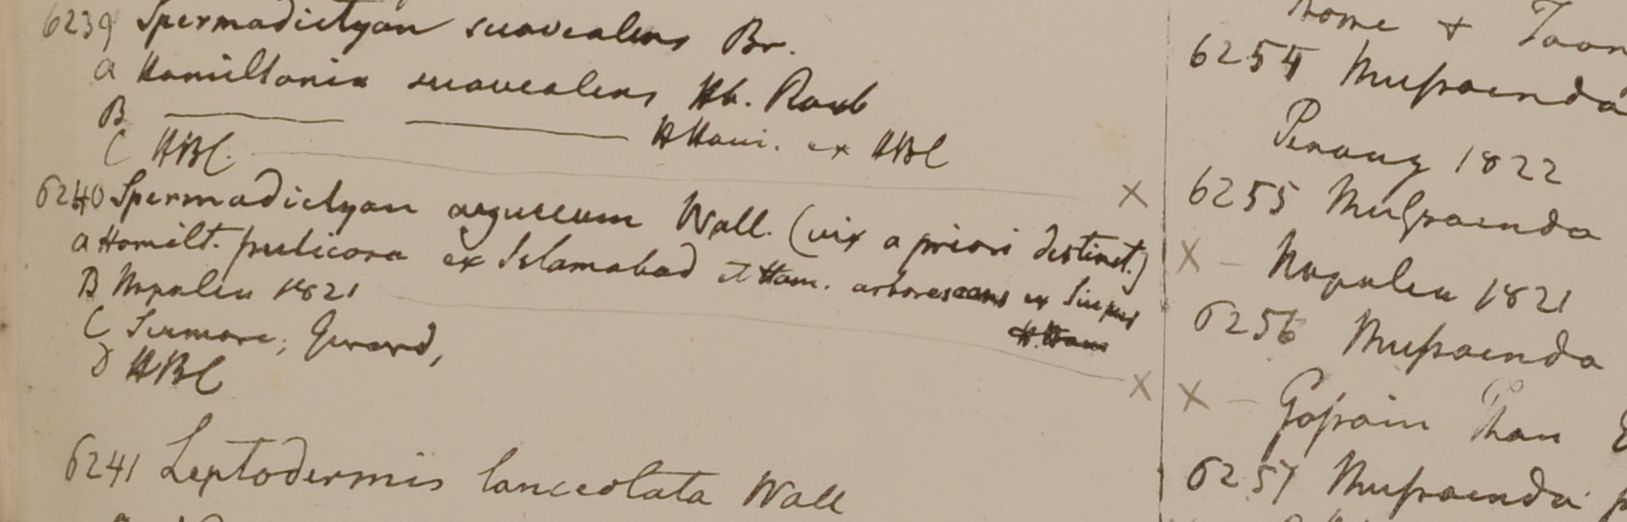 6239 Spermadictyon suaveolens Br.
a Hamiltonia suaveolens Hb. Roxb
B —— —— H Ham. ex HBC
C HBC. X
6240 Spermadictyon azureum Wall. (vix a priori distinct.)
a Hamilt. fruticosa ex Islamabad et Ham. arborescens ex
H. Ham
B Napalia 1821 X
C Sirmore, Gerard,
D HBC
6241 Leptodermis lanceolata Wall
+
6254 Mussaenda
Penang 1822
6255 Mussaenda
X – Napalia 1821
6256 Mussaenda
X – Gossain Than
6257 Mussaenda